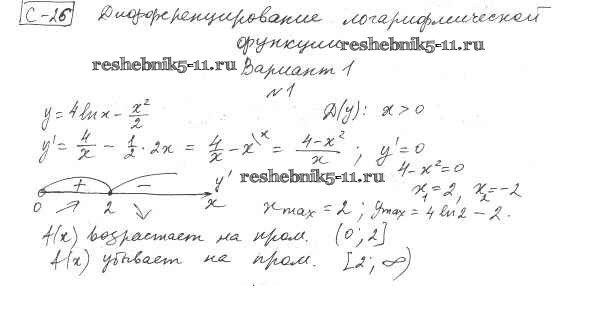 С-26 Дифференцирование логарифмической
функции reshebnik5-11.ru
reshebnik5-11.ru Вариант 1
№1
y = 4 ln x - x²/2 D(y): x > 0
y' = 4/x - 1/2 · 2x = 4/x - x \x = (4-x²)/x ; y' = 0
4 - x² = 0
x₁ = 2, x₂ = -2
+ - y' reshebnik5-11.ru
0 2 x
x max = 2 ; y max = 4 ln 2 - 2.
f(x) возрастает на пром. (0; 2]
f(x) убывает на пром. [2; ∞)